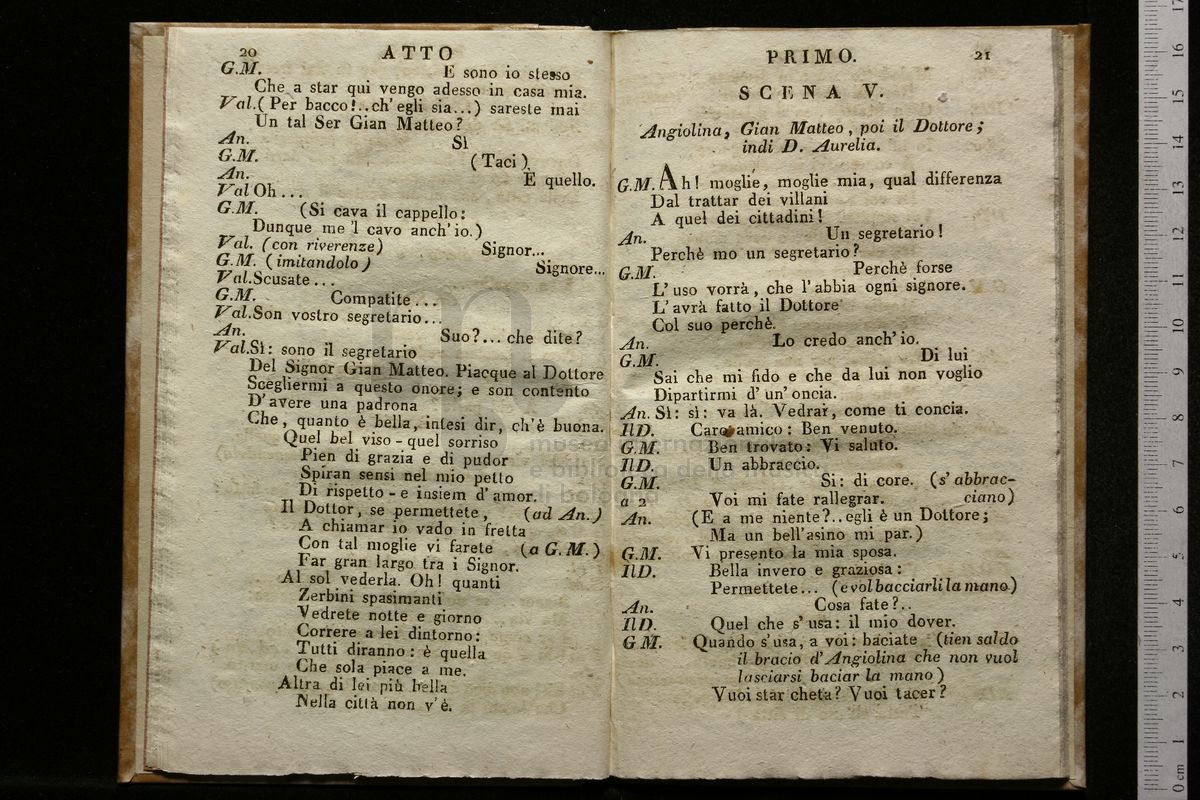 20 ATTO
G.M. E sono io stesso
Che a star qui vengo adesso in casa mia.
Val.(Per bacco!..ch'egli sia...) sareste mai
Un tal Ser Gian Matteo?
An. Sì
G.M. (Taci)
An. È quello.
Val Oh...
G.M. (Si cava il cappello:
Dunque me 'l cavo anch'io.)
Val. (con riverenze) Signor...
G.M. (imitandolo) Signore...
Val.Scusate...
G.M. Compatite...
Val.Son vostro segretario...
An. Suo?...che dite?
Val.Sì: sono il segretario
Del Signor Gian Matteo. Piacque al Dottore
Scegliermi a questo onore; e son contento
D'avere una padrona
Che, quanto è bella, intesi dir, ch'è buona.
Quel bel viso - quel sorriso
Pien di grazia e di pudor
Spiran sensi nel mio petto
Di rispetto - e insiem d'amor.
Il Dottor, se permettete, (ad An.)
A chiamar io vado in fretta
Con tal moglie vi farete (a G.M.)
Far gran largo tra i Signor.
Al sol vederla. Oh! quanti
Zerbini spasimanti
Vedrete notte e giorno
Correre a lei dintorno:
Tutti diranno: è quella
Che sola piace a me.
Altra di lei più bella
Nella città non v'è.
PRIMO. 21
SCENA V.
Angiolina, Gian Matteo, poi il Dottore;
indi D. Aurelia.
G.M. Ah! moglie, moglie mia, qual differenza
Dal trattar dei villani
A quel dei cittadini!
An. Un segretario!
Perchè mo un segretario?
G.M. Perchè forse
L'uso vorrà, che l'abbia ogni signore.
L'avrà fatto il Dottore
Col suo perchè.
An. Lo credo anch'io.
G.M. Di lui
Sai che mi fido e che da lui non voglio
Dipartirmi d'un'oncia.
An. Sì: sì: va là. Vedrai, come ti concia.
Il D. Caro amico: Ben venuto.
G.M. Ben trovato: Vi saluto.
Il D. Un abbraccio.
G.M. Si: di core. (s'abbrac-
a 2 Voi mi fate rallegrar. ciano)
An. (E a me niente?..egli è un Dottore;
Ma un bell'asino mi par.)
G.M. Vi presento la mia sposa.
Il D. Bella invero e graziosa:
Permettete... (e vol bacciarli la mano)
An. Cosa fate?..
Il D. Quel che s'usa: il mio dover.
G M. Quando s'usa, a voi: baciate (tien saldo
il bracio d'Angiolina che non vuol
lasciarsi baciar la mano)
Vuoi star cheta? Vuoi tacer?